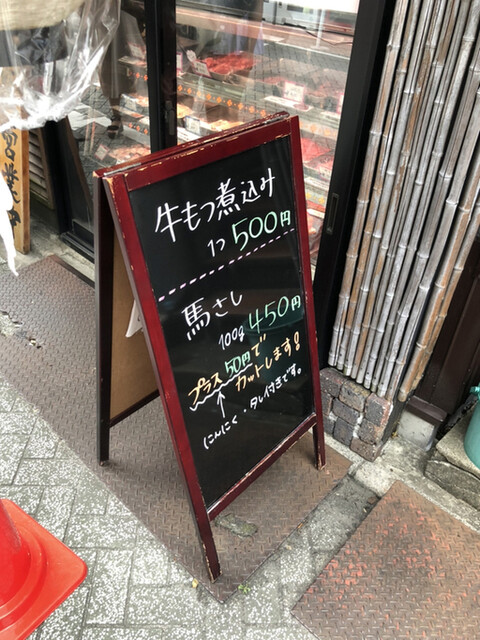 牛もつ煮込み
1つ 500円
馬さし
100g 450円
プラス50円で
カットします!
↑
にんにく・タレ付きです。
営業中